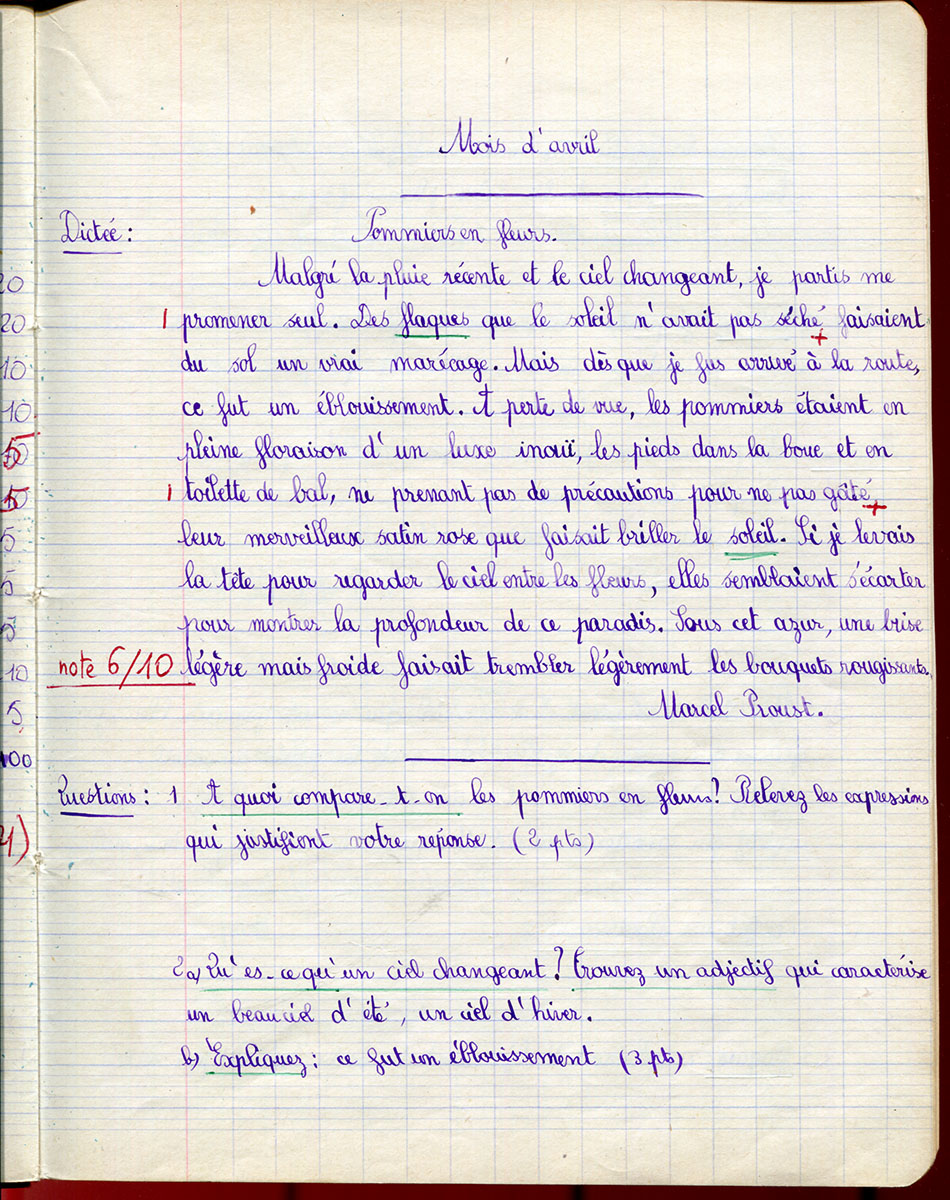 Mois d'avril
Dictée : Pommiers en fleurs.
Malgré la pluie récente et le ciel changeant, je partis me
1 promener seul. Des flaques que le soleil n'avait pas séché faisaient
du sol un vrai marécage. Mais dès que je fus arrivé à la route,
ce fut un éblouissement. A perte de vue, les pommiers étaient en
pleine floraison d'un luxe inouï, les pieds dans la boue et en
1 toilette de bal, ne prenant pas de précautions pour ne pas gâté
leur merveilleux satin rose que faisait briller le soleil. Si je levais
la tête pour regarder le ciel entre les fleurs, elles semblaient s'écarter
pour montrer la profondeur de ce paradis. Sous cet azur, une brise
note 6/10 légère mais froide faisait trembler légèrement les bouquets rougissants.
Marcel Proust.
Questions : 1 A quoi compare-t-on les pommiers en fleurs? Relevez les expressions
qui justifient votre réponse. (2 pts)
2 a) Qu'es-ce qu'un ciel changeant? Trouvez un adjectif qui caractérise
un beau ciel d'été, un ciel d'hiver.
b) Expliquez : ce fut un éblouissement (3 pts)
20
20
10
10
5
5
5
5
5
10
5
100